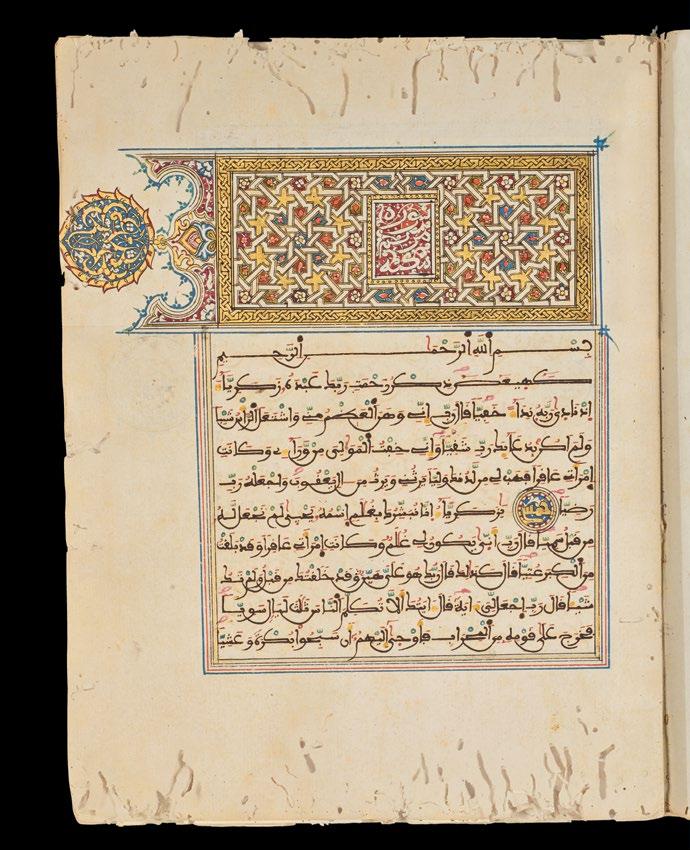 سورة
مريم
مكية
بسم الله الرحمن الرحيم
كهيعص ذكر رحمت ربك عبده زكرياء
اذ نادى ربه نداء خفيا قال رب اني وهن العظم مني واشتعل الراس شيبا
ولم اكن بدعائك رب شقيا واني خفت الموالي من وراءي وكانت
امراتي عاقرا فهب لي من لدنك وليا يرثني ويرث من ال يعقوب واجعله رب
رضيا يزكرياء انا نبشرك بغلم اسمه يحيى لم نجعل له
من قبل سميا قال رب انى يكون لي غلم وكانت امراتي عاقرا وقد بلغت
من الكبر عتيا قال كذلك قال ربك هو علي هين وقد خلقتك من قبل ولم تك
شيئا قال رب اجعل لي ءاية قال ءايتك الا تكلم الناس ثلث ليال سويا
فخرج على قومه من المحراب فاوحى اليهم ان سبحوا بكرة وعشيا